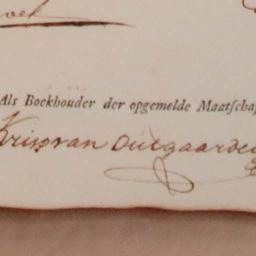 Als Boekhouder der opgemelde Maatſchap
Kris van Outgaarden